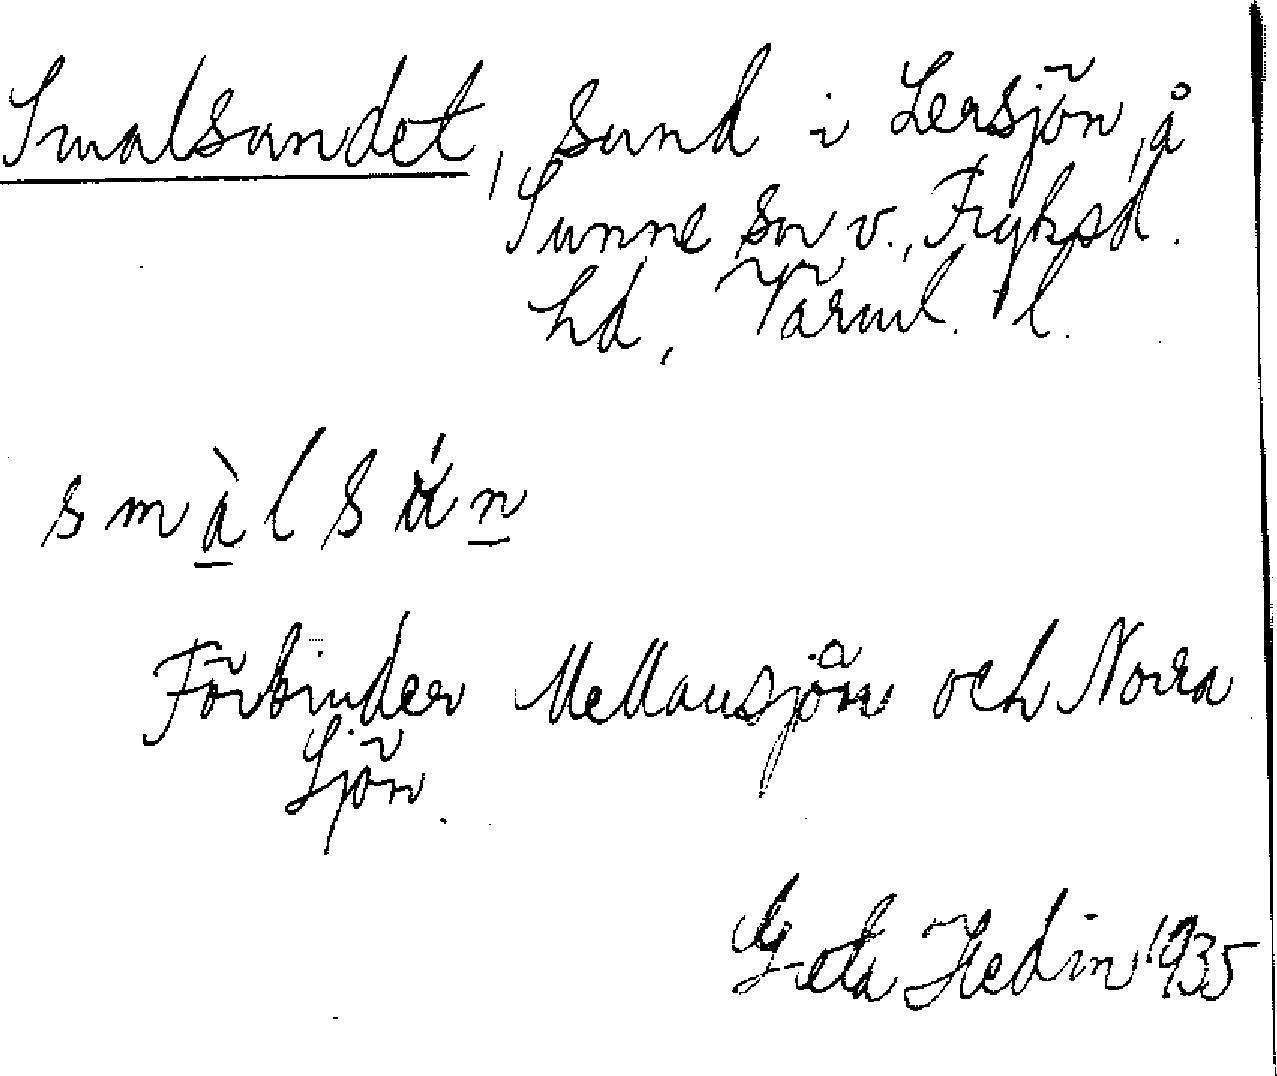 Smalsundet, Sund i Lersjön, å
Sunne sn v., Fryksd.
hd, Värml. l.
s m à l s ú n
Förbinder Mellansjön och Norra
Sjön.
Greta Hedin 1935